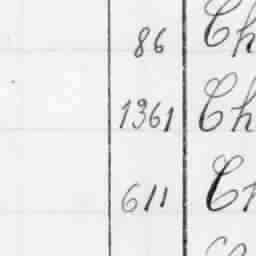 86 Ch
1361 Ch
611 Ch